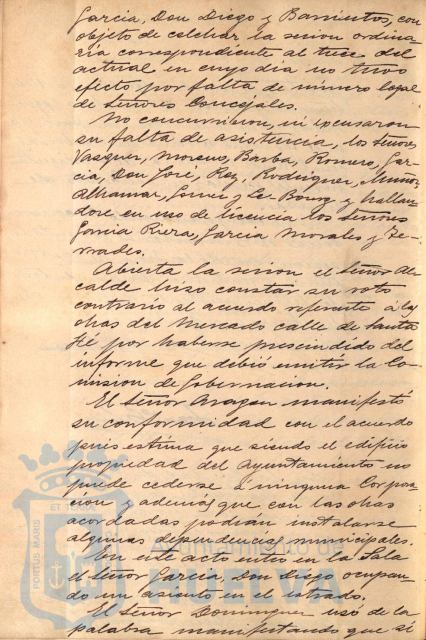 Garcia, Don Diego y Barrientos, con
objeto de celebrar la sesion ordina-
ria correspondiente al trece del
actual en cuyo dia no tuvo
efecto por falta de número legal
de Señores Concejales.
No concurrieron, ni excusaron
su falta de asistencia, los Señores
Vazquez, Moreno, Barba, Romero, Gar-
cia, Don José, Rey, Rodriguez, Muñoz,
Alhamar, Gomez, Le-Bourg y hallan-
dose en uso de licencia los Señores
Garcia Riera, Garcia Morales y Te-
rrades.
Abierta la sesion el Señor Al-
calde hizo constar su voto
contrario al acuerdo referente á las
obras del Mercado calle de Santa
Fé por haberse prescindido del
informe que debió emitir la Co-
mision de Gobernacion.
El Señor Aragon manifestó
su conformidad con el acuerdo
pues estima que siendo el edificio
propiedad del Ayuntamiento no
puede cederse á ninguna Corpora-
cion y ademas que con las obras
acordadas podrán instalarse
algunas dependencias municipales.
En este acto entró en la Sala
el Señor Garcia, Don Diego, ocupan-
do un asiento en el estrado.
El Señor Dominguez usó de la
palabra manifestando que si
PORTUS MARIS
ET TERRAE
Ayuntamiento de
HUELVA